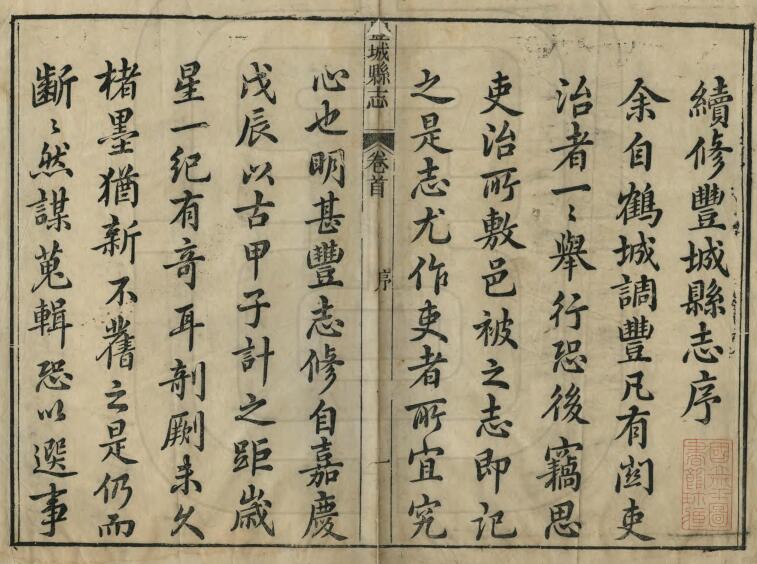 續修豐城縣志序
余自鶴城調豐凡有関吏
治者一〻舉行恐後竊思
吏治所敷邑被之志即記
之是志尤作吏者所宜究
豐城縣志 卷首 序 一
心也明甚豐志修自嘉慶
戊辰以古甲子計之距歲
星一紀有奇耳剞劂未久
楮墨猶新不舊之是仍而
斷〻然謀蒐輯恐以選事